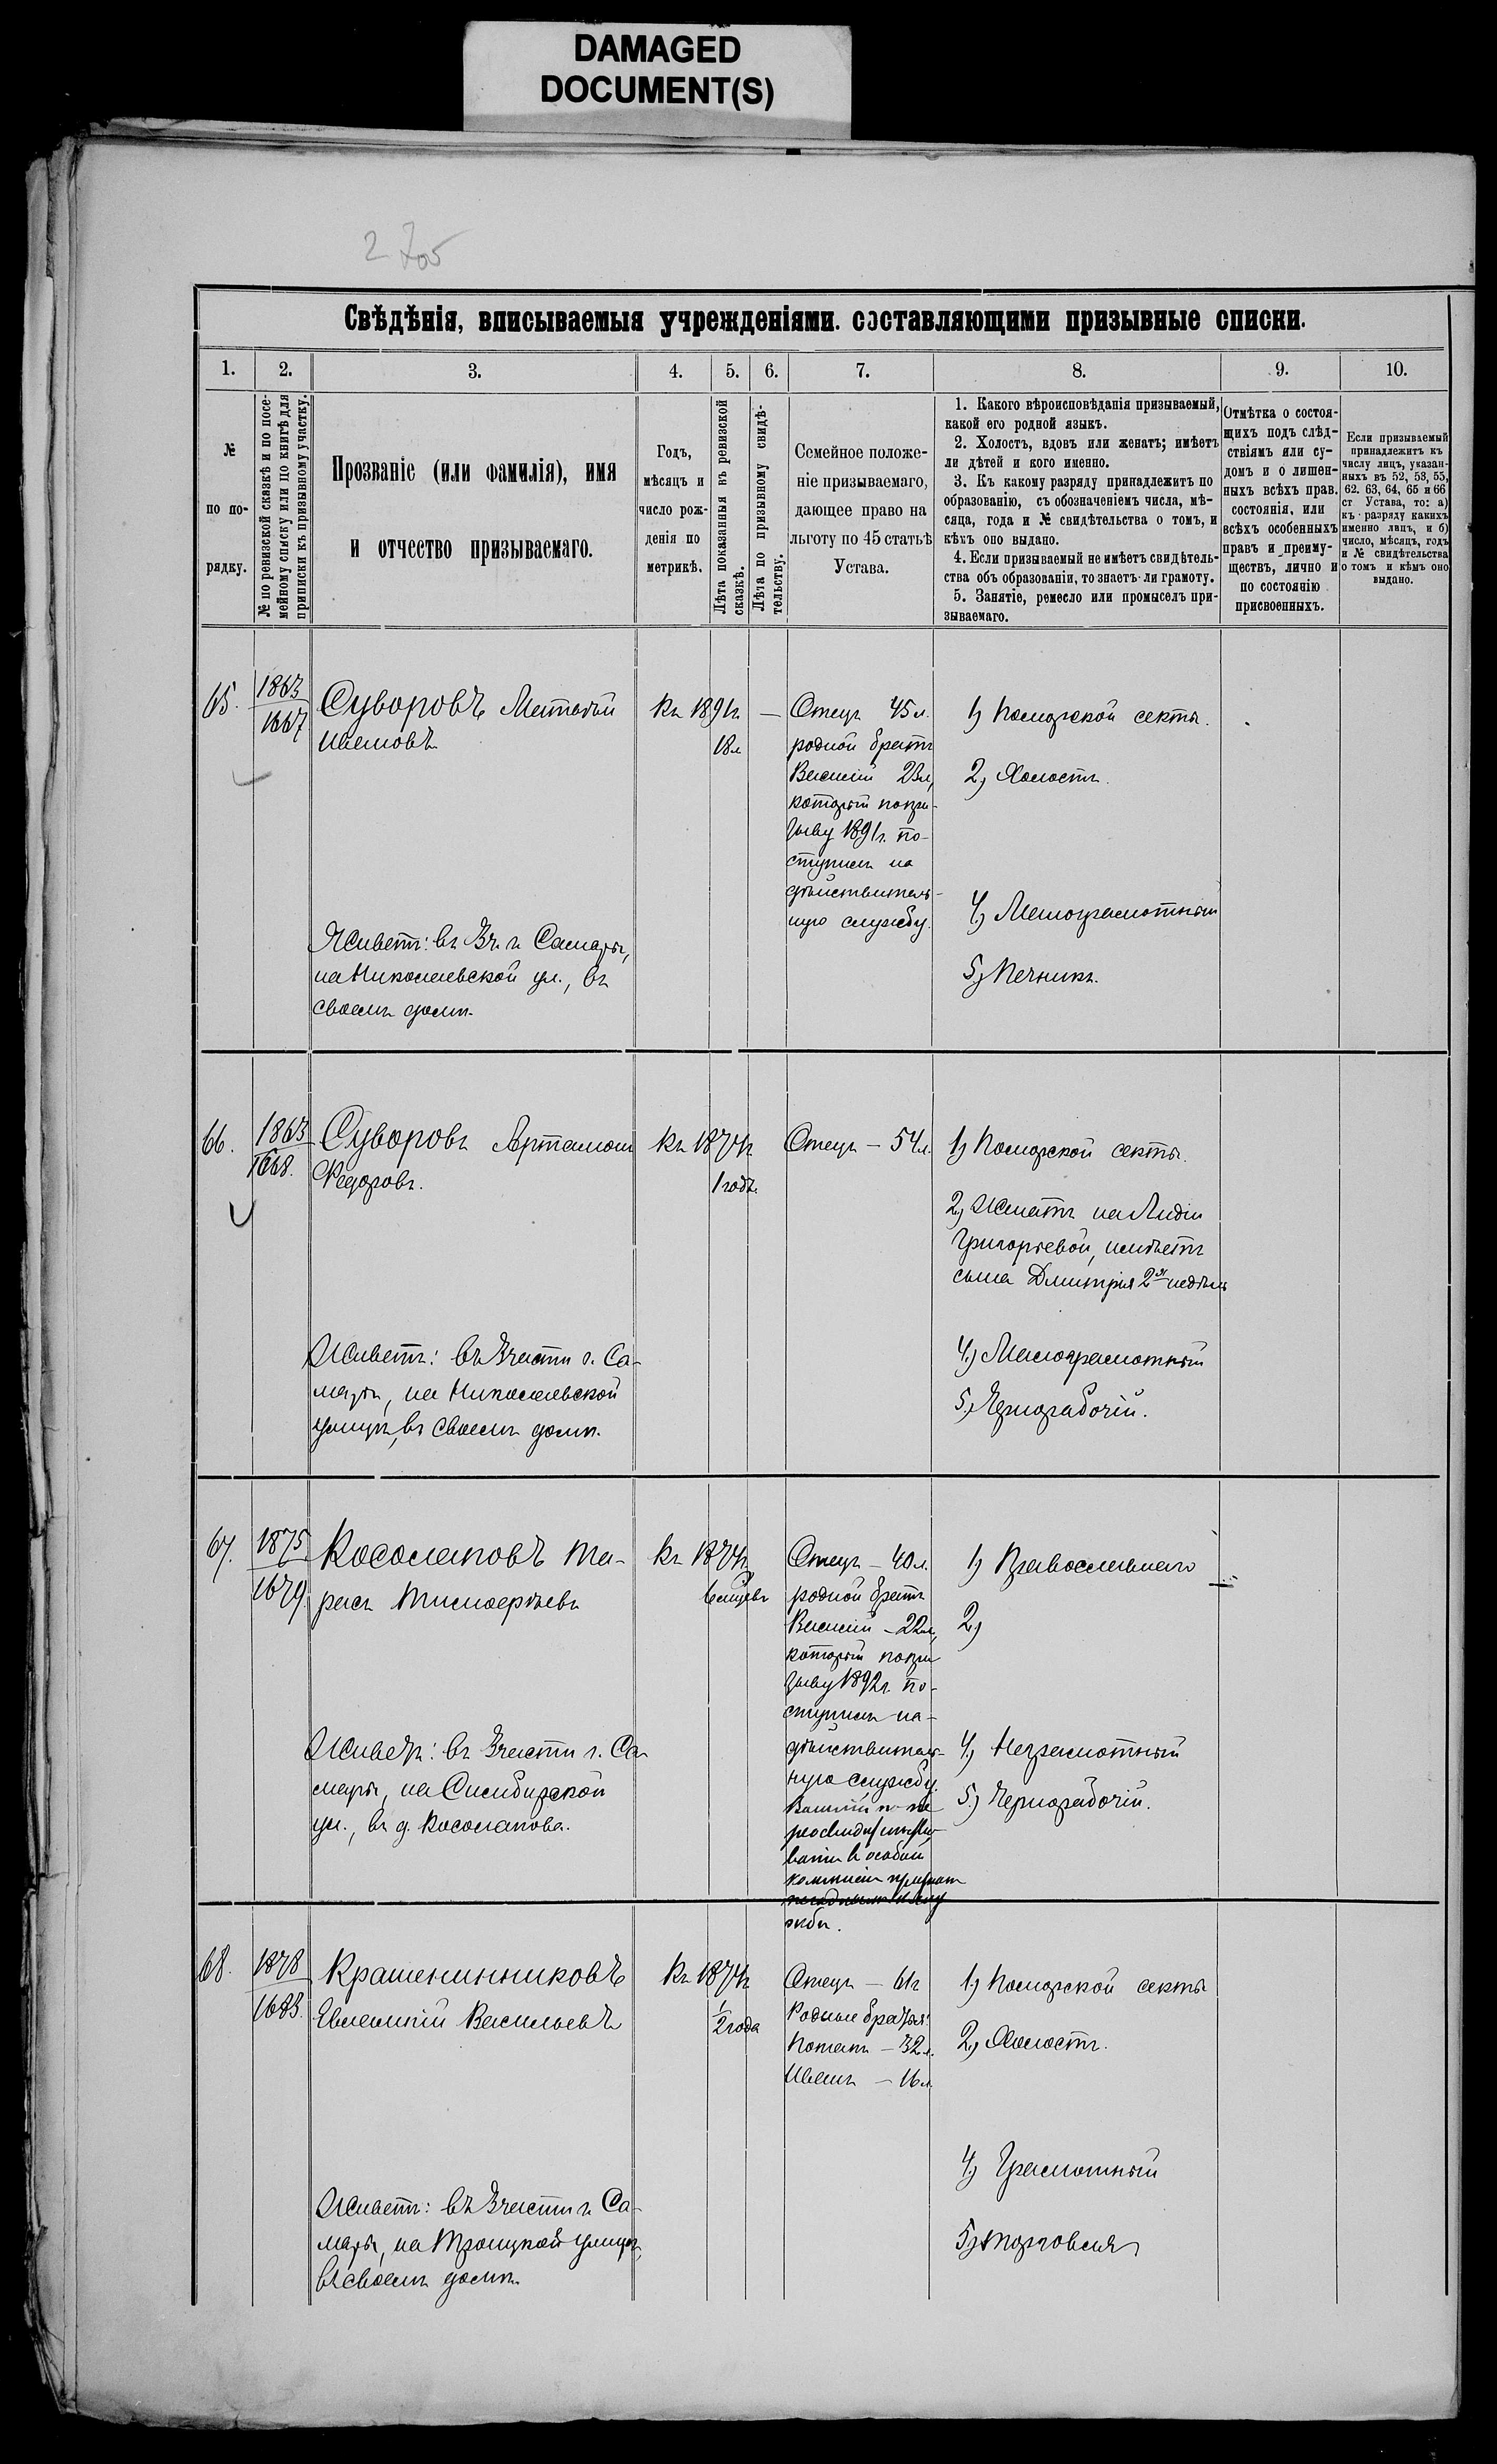 DAMAGED
DOCUMENT(S)
2
Свѣдѣнія, вписываемыя учрежденіями. составляющими призывные списки.
1. 2. 3. 4. 5. 6. 7. 8. 9. 10.
№
по по-
рядку.
№ по ревизской сказкѣ и по посе-
мейному списку или по книгѣ для
приписки къ призывному участку.
Прозваніе (или фамилія), имя
и отчество призываемаго.
Годъ,
мѣсяцъ и
число рож-
денія по
метрикѣ.
Лѣта показанныя къ ревизской
сказкѣ.
Лѣта по призывному свидѣ-
тельству.
Семейное положе-
ніе призываемаго,
дающее право на
льготу по 45 статьѣ
Устава.
1. Какого вѣроисповѣданія призываемый,
какой его родной языкъ.
2. Холостъ, вдовъ или женатъ; имѣетъ
ли дѣтей и кого именно.
3. Къ какому разряду принадлежитъ по
образованію, съ обозначеніемъ числа, мѣ-
сяца, года и № свидѣтельства о томъ, и
кѣмъ оно выдано.
4. Если призываемый не имѣетъ свидѣтель-
ства объ образованіи, то знаетъ-ли грамоту.
5. Занятіе, ремесло или промыселъ при-
зываемаго.
Отмѣтка о состоя-
щихъ подъ слѣд-
ствіямъ или су-
домъ и о лишен-
ныхъ всѣхъ прав.
состоянія, или
всѣхъ особенныхъ
правъ и преиму-
ществъ, лично и
по состоянію
присвоенныхъ.
Если призываемый
принадлежитъ къ
числу лицъ, указан-
ныхъ въ 52, 53, 55,
62. 63, 64, 65 и 66
ст Устава, то: а)
къ разряду какихъ
именно лицъ, и б)
число, мѣсяцъ, годъ
и № свидѣтельства
о томъ и кѣмъ оно
выдано.
65.
1863
1667
Суворовъ
Ивановъ
Живетъ: въ 3 ч. г. Самары,
на Николаевской ул., въ
своемъ домѣ.
Къ 1891 г.
18 л
—
Отецъ 45 л.
родной братъ
Василій 23 л,
который по при-
зыву 1891 г. по-
ступилъ на
дѣйствитель-
ную службу.
1) Поморской секты.
2) Холостъ.
4) Малограмотный
5) Печникъ.
66.
1863
1668.
Суворовъ Артамонъ
Федоровъ.
Живетъ: въ 3 части г. Са-
мары, на Николаевской
улицѣ, въ своемъ домѣ.
Къ 1874 г
1 годъ.
Отецъ — 54 л.
1) Поморской секты.
2) Женатъ на Лидіи
Григорьевой, имѣетъ
сына Дмитрія 2хъ недѣль
4) Малограмотный
5) Чернорабочій.
67.
1875
1679.
Косолаповъ Та-
расъ Тимоѳеевъ
Живетъ: въ 3 части г. Са-
мары, на Симбирской
ул., въ д. Косолапова.
Къ 1874 г
6 мѣсяцевъ
Отецъ — 40 л.
родной братъ
Василій — 22 л,
который по при
зыву 1892 г. по-
ступилъ на-
дѣйствитель-
ную службу.
Василій по пе
реосвидѣтельство
ваніи въ особой
комиссіи признанъ
жбы.
1) Православнаго
2)
4) Неграмотный
5) Чернорабочій.
68.
1878
1683.
Крашенинниковъ
Евлампій Васильевъ
Живетъ: въ 3 части г. Са-
мары, на Троицкой улицѣ,
въ своемъ домѣ.
Къ 1874 г
1/2 года
Отецъ — 61 г
Родные братья:
Потапъ — 32 л.
Иванъ — 16 л.
1) Поморской секты
2) Холостъ.
4) Грамотный
5) Торговля